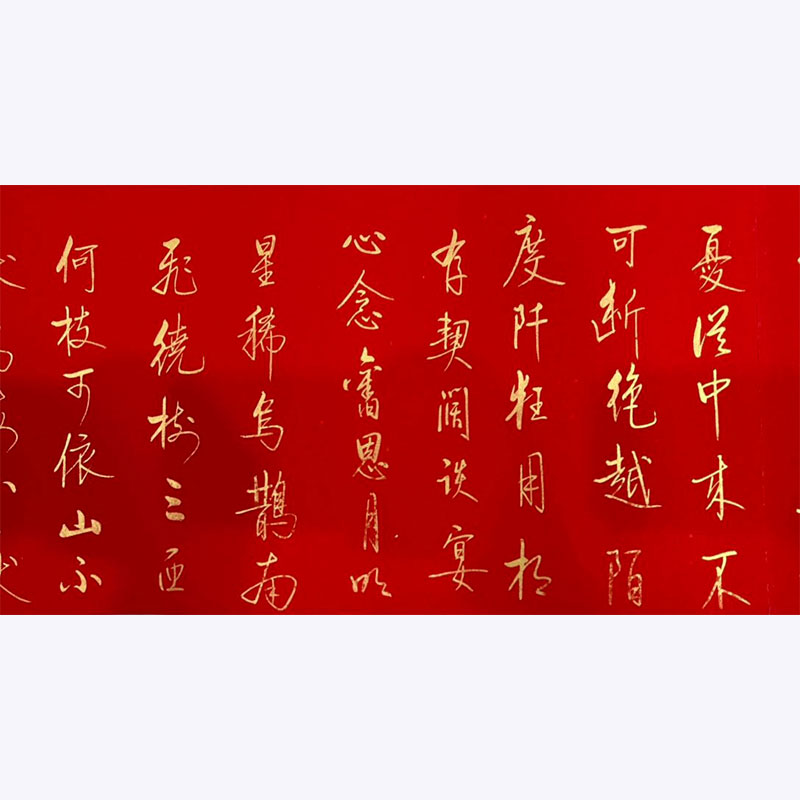 憂從中来不
可断绝越陌
度阡枉用相
存契闊談宴
心念舊恩月明
星稀烏鵲南
飛繞樹三匝
何枝可依山不